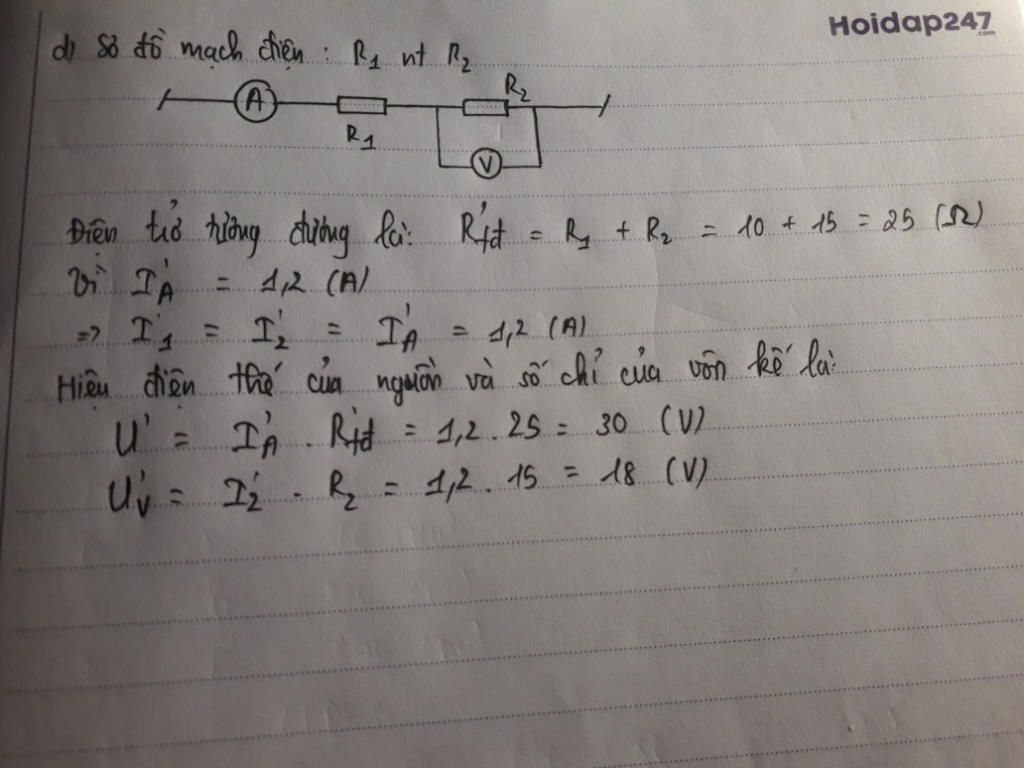 Hoidap247
.com
d) Sơ đồ mạch điện : R₁ nt R₂
A
R₁
R₂
V
Điện trở tương đương là: R'tđ = R₁ + R₂ = 10 + 15 = 25 (Ω)
Vì I'A = 1,2 (A)
=> I'₁ = I'₂ = I'A = 1,2 (A)
Hiệu điện thế của nguồn và số chỉ của vôn kế là:
U' = I'A . R'tđ = 1,2 . 25 = 30 (V)
U'V = I'₂ . R₂ = 1,2 . 15 = 18 (V)